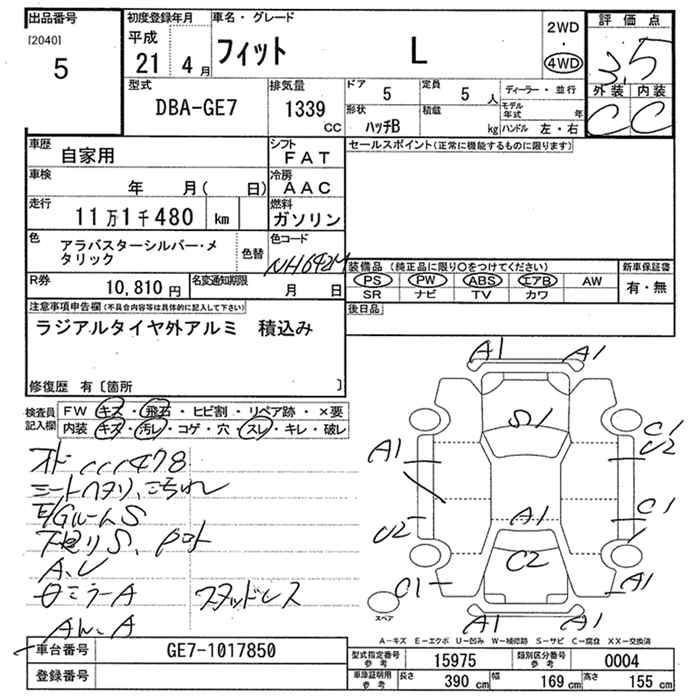 出品番号 初度登録年月 車名・グレード 2WD ・ 4WD 評価点
[2040] 5 平成 21 4月 フィット L 3.5
型式 DBA-GE7 排気量 1339 CC ドア 5 定員 5 人 ディーラー・並行 外装 内装
形状 ハッチB 積載 kg モデル年式 年 ハンドル 左・右 C C
車歴 自家用 シフト FAT セールスポイント(正常に機能するものに限ります)
車検 年 月( 日) 冷房 AAC
走行 11万1千480 km 燃料 ガソリン
色 アラバスターシルバー・メタリック 色替 色コード NH692M
装備品(純正品に限り○をつけてください) 新車保証書
PS PW ABS エアB AW 有・無
SR ナビ TV カワ
R券 10,810円 名変通知期限 月 日
後日品
注意事項申告欄(不具合内容等は具体的に記入して下さい)
ラジアルタイヤ外アルミ 積込み
修復歴 有〔箇所 〕
検査員記入欄 FW キズ・飛石・ヒビ割・リペア跡・×要
内装 キズ・汚レ・コゲ・穴・スレ・キレ・破レ
A1 A1
S1
A1 C1
U2
A1 C1
U2
C2
C1 A1
A1 A1
スペア
シートヘタリ、こぢれ
E/GルームS
下廻りS、
A、U
ミラーA スタッドレス
A―キズ E―エクボ U―凹み W―補修跡 S―サビ C―腐食 XX―交換済
車台番号 GE7-1017850
登録番号
型式指定番号 参考 15975 類別区分番号 参考 0004
車庫証明用 参考 長さ 390 cm 幅 169 cm 高さ 155 cm